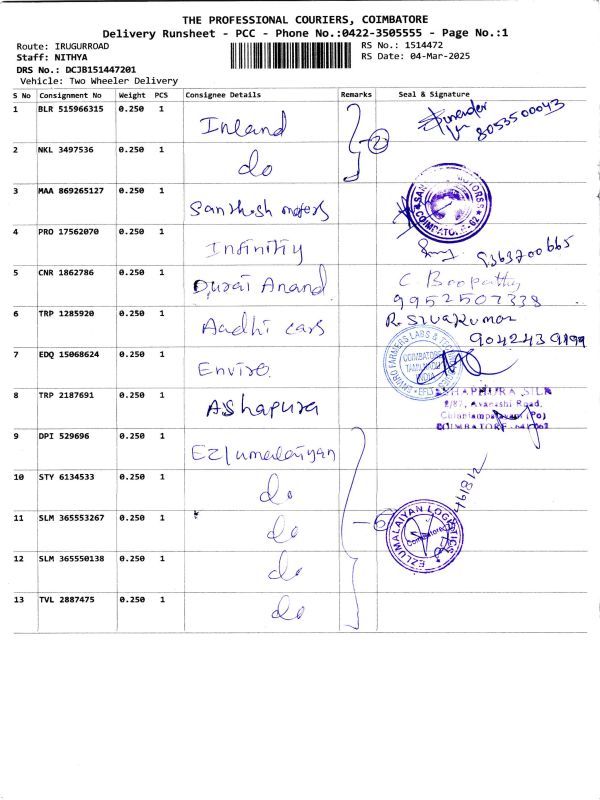 THE PROFESSIONAL COURIERS, COIMBATORE
Delivery Runsheet - PCC - Phone No.:0422-3505555 - Page No.:1
Route: IRUGURROAD RS No.: 1514472
Staff: NITHYA RS Date: 04-Mar-2025
DRS No.: DCJB151447201
Vehicle: Two Wheeler Delivery
S No Consignment No Weight PCS Consignee Details Remarks Seal & Signature
1 BLR 515966315 0.250 1 Inland 8053500043
2 NKL 3497536 0.250 1 do 2
3 MAA 869265127 0.250 1 Santhosh motors COIMBATORE-62
4 PRO 17562070 0.250 1 Infinitiy 9363700665
5 CNR 1862786 0.250 1 Durai Anand C Boopathy
9952507338
6 TRP 1285920 0.250 1 Aadhi cars R. Sivakumar
9042439199
7 EDQ 15068624 0.250 1 Enviro ENVIRO FARMERS LABS & COIMBATORE TAMILNADU INDIA
8 TRP 2187691 0.250 1 Ashapura SILK
8/87, Avanashi Road,
(Po)
COIMBATORE
9 DPI 529696 0.250 1 Ezlumalaiyan
10 STY 6134533 0.250 1 do
11 SLM 365553267 0.250 1 do 5 EZLUMALAIYAN LOGISTICS Coimbatore
12 SLM 365550138 0.250 1 do
13 TVL 2887475 0.250 1 do